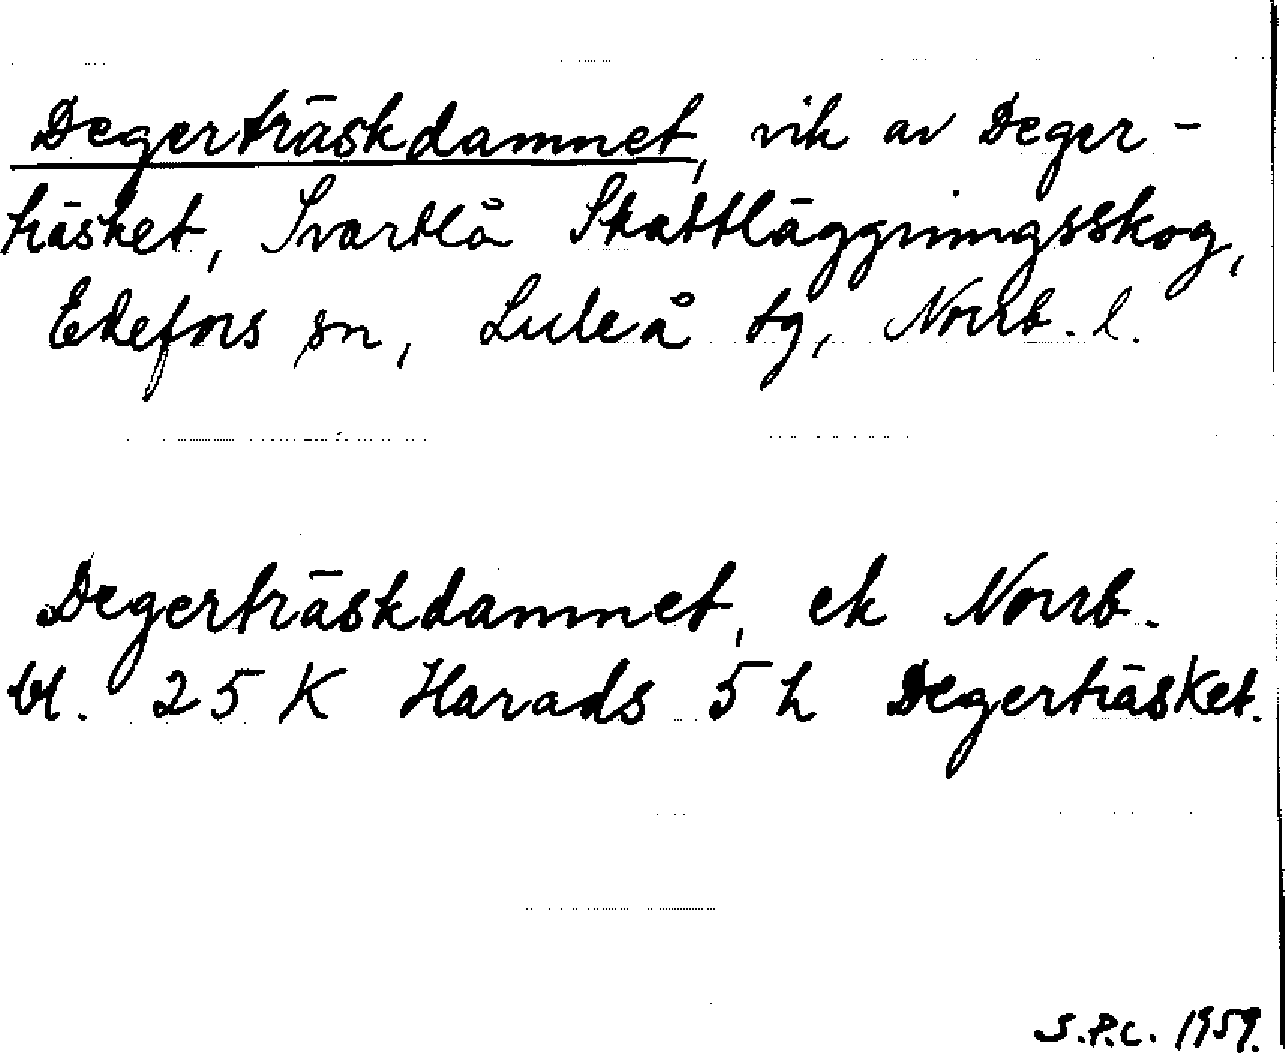 Degerträskdamnet, vik av Deger-
träsket, Svartlå Skattläggningsskog,
Edefors sn, Luleå tg, Norrb. l.
Degerträskdamnet, ek Norrb.
bl. 25 K Harads 5 h Degerträsket.
S.P.C. 1959.